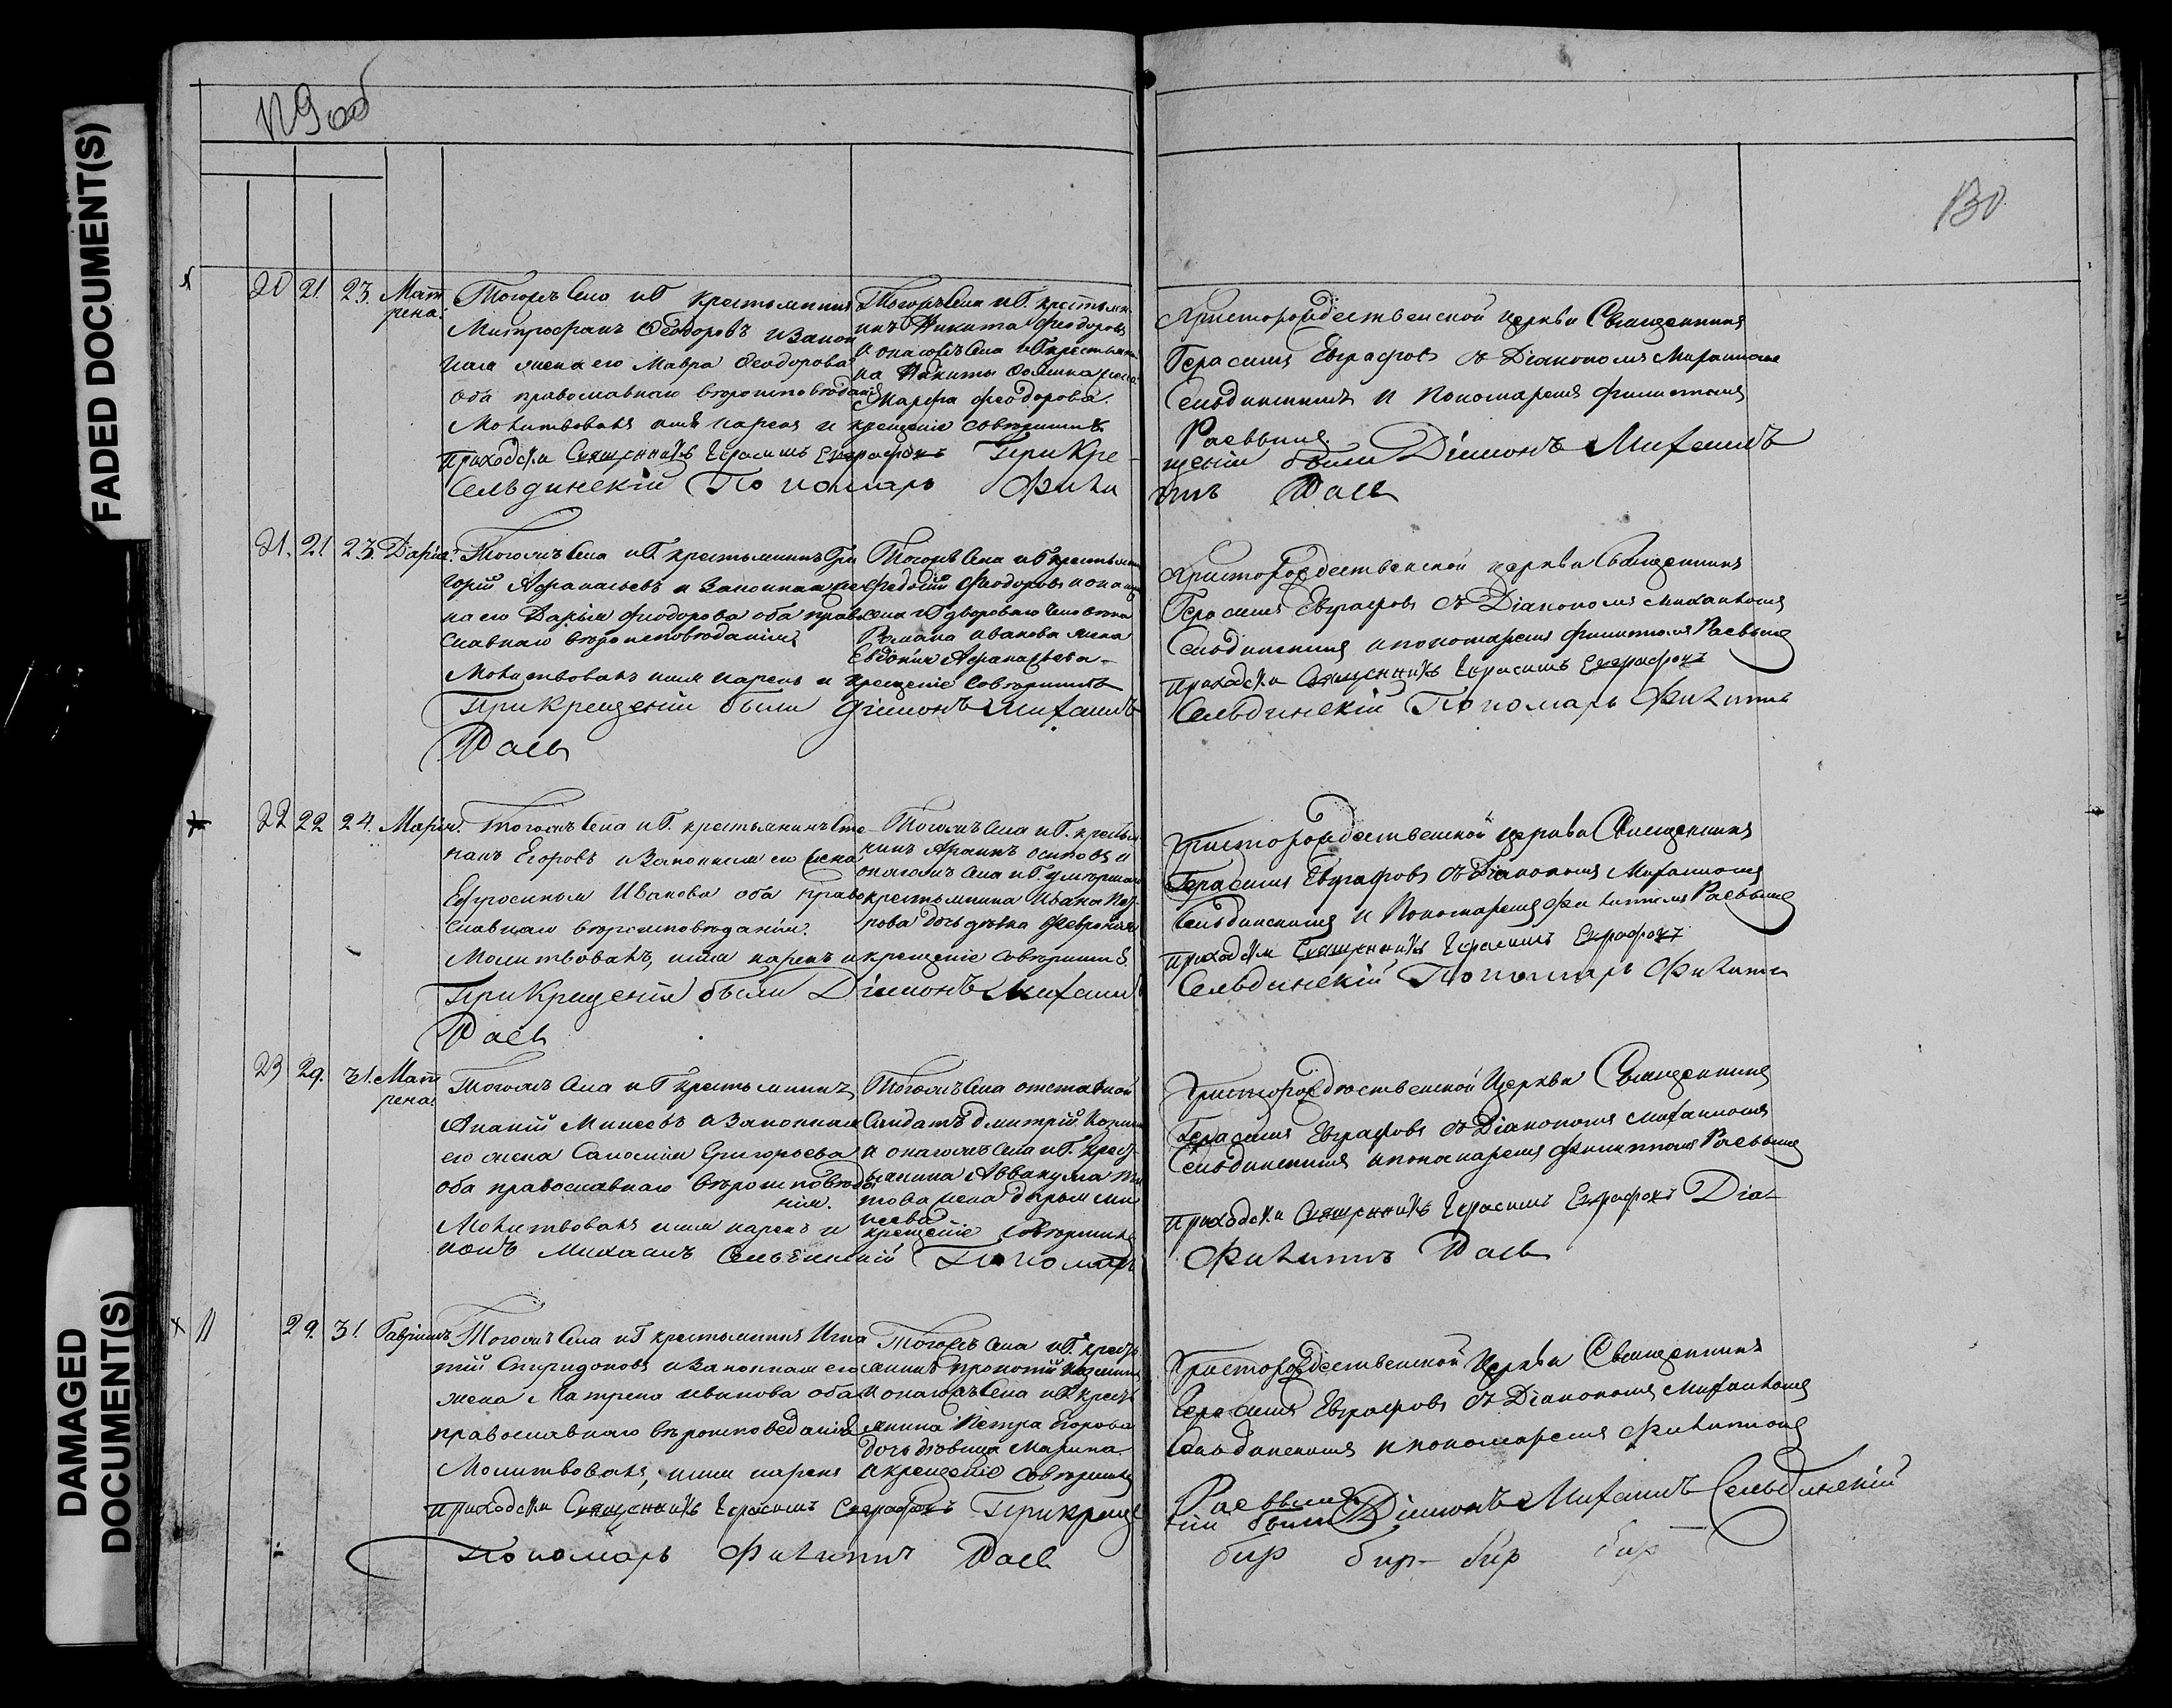 FADED DOCUMENT(S)
DAMAGED
DOCUMENT(S)
130
20 21. 23. Мат
рена.
Тогожъ Села и Г. крестьянинъ
Митрофанъ Ѳеодоровъ и закон
ная жена его Мавра Ѳеодорова
оба православнаго вѣроисповѣданія
Тогожъ Села и Г. крестьян
инъ Никита Феодоровъ
и онагожъ Села и Г. крестьяни
на Никиты жена
Марѳа Феодорова.
Христорождественской церкви Священникъ
Герасимъ Евграфовъ съ Діакономъ Михаиломъ
Сельдинскимъ и Пономаремъ Филиппомъ
Раевымъ
Молитвовалъ имя нарекъ и крещеніе совершилъ
приходски Священникъ Герасимъ Евграфовъ При Кре-
щеніи были Діяконъ Михаилъ
Сельдинскій Пономарь Фили
ппъ Раевъ
21. 21. 23. Дарія.
Тогожъ Села и Г. крестьянинъ Гри
горій Афанасьевъ и Законная же
на его Дарья Феодорова оба право
славнаго вѣроисповѣданія
Тогожъ Села и Г. крестьянинъ
Феодоровъ и она
Села и Г. двороваго человѣка
Романа Иванова жена
Евдокія Афанасьева
Христорождественской церкви Священникъ
Герасимъ Евграфовъ съ Діакономъ Михаиломъ
Сельдинскимъ и пономаремъ Филиппомъ Раевымъ
Молитвовалъ имя нарекъ и крещеніе совершилъ
приходски Священникъ Герасимъ Евграфовъ
При Крещеніи были Діяконъ Михаилъ
Сельдинскій Пономарь Филиппъ
Раевъ
22 22 24. Марія.
Тогожъ Села и Г. крестьянинъ Сте
панъ Егоровъ и Законная его жена
Ефросинья Иванова оба право
славнаго вѣроисповѣданія.
Тогожъ Села и Г. крестья
нинъ Осиповъ и
онагожъ Села и Г. умершаго
крестьянина Ивана Пет
рова дочь дѣвка Феврония
Христорождественской церкви Священникъ
Герасимъ Евграфовъ съ Діакономъ Михаиломъ
Сельдинскимъ и Пономаремъ Филиппомъ Раевымъ
Молитвовалъ, имя нарекъ и крещеніе совершилъ.
приходски Священникъ Герасимъ Евграфовъ
При Крещеніи были Діяконъ Михаилъ
Сельдинскій Пономарь Филиппъ
Раевъ
23 29. 31. Мат
рена.
Тогожъ Села и Г крестьянинъ
Ананій Минеевъ и Законная
его жена Соломія Григорьева
оба православнаго вѣроисповѣда
нія.
Тогожъ Села отставной
Солдатъ Дмитрій Козмин
и онагожъ Села и Г. крест
ьянина Аввакума Ти
това жена Дарья Ми
неева
Христорождественской Церкви Священникъ
Герасимъ Евграфовъ съ Діакономъ Михаиломъ
Сельдинскимъ и пономаремъ Филиппомъ Раевымъ
Молитвовалъ имя нарекъ и крещеніе совершилъ
приходски Священникъ Герасимъ Евграфовъ Діа-
конъ Михаилъ Сельдинскій Пономарь
Филиппъ Раевъ
11 29. 31. Гавріилъ
Тогожъ Села и Г крестьянинъ Игна
тій Спиридоновъ и Законная его
жена Матрена Иванова оба
православнаго вѣроисповеданія
Тогожъ Села и Г. кресть
янинъ Прокопій Козминъ
и онагожъ Села и Г. кресть
янина Петра Егорова
дочь дѣвица Марина.
Христорождественской Церкви Священникъ
Герасимъ Евграфовъ съ Діакономъ Михаиломъ
Сельдинскимъ и пономаремъ Филиппомъ
Раевымъ
Молитвовалъ, имя нарекъ и крещеніе совершилъ
приходски Священникъ Герасимъ Евграфовъ При креще
ніи были Діяконъ Михаилъ Сельдинскій
Пономарь Филиппъ Раевъ